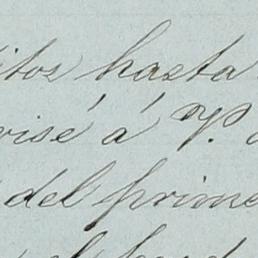 itos hasta
visé á V.
del prime